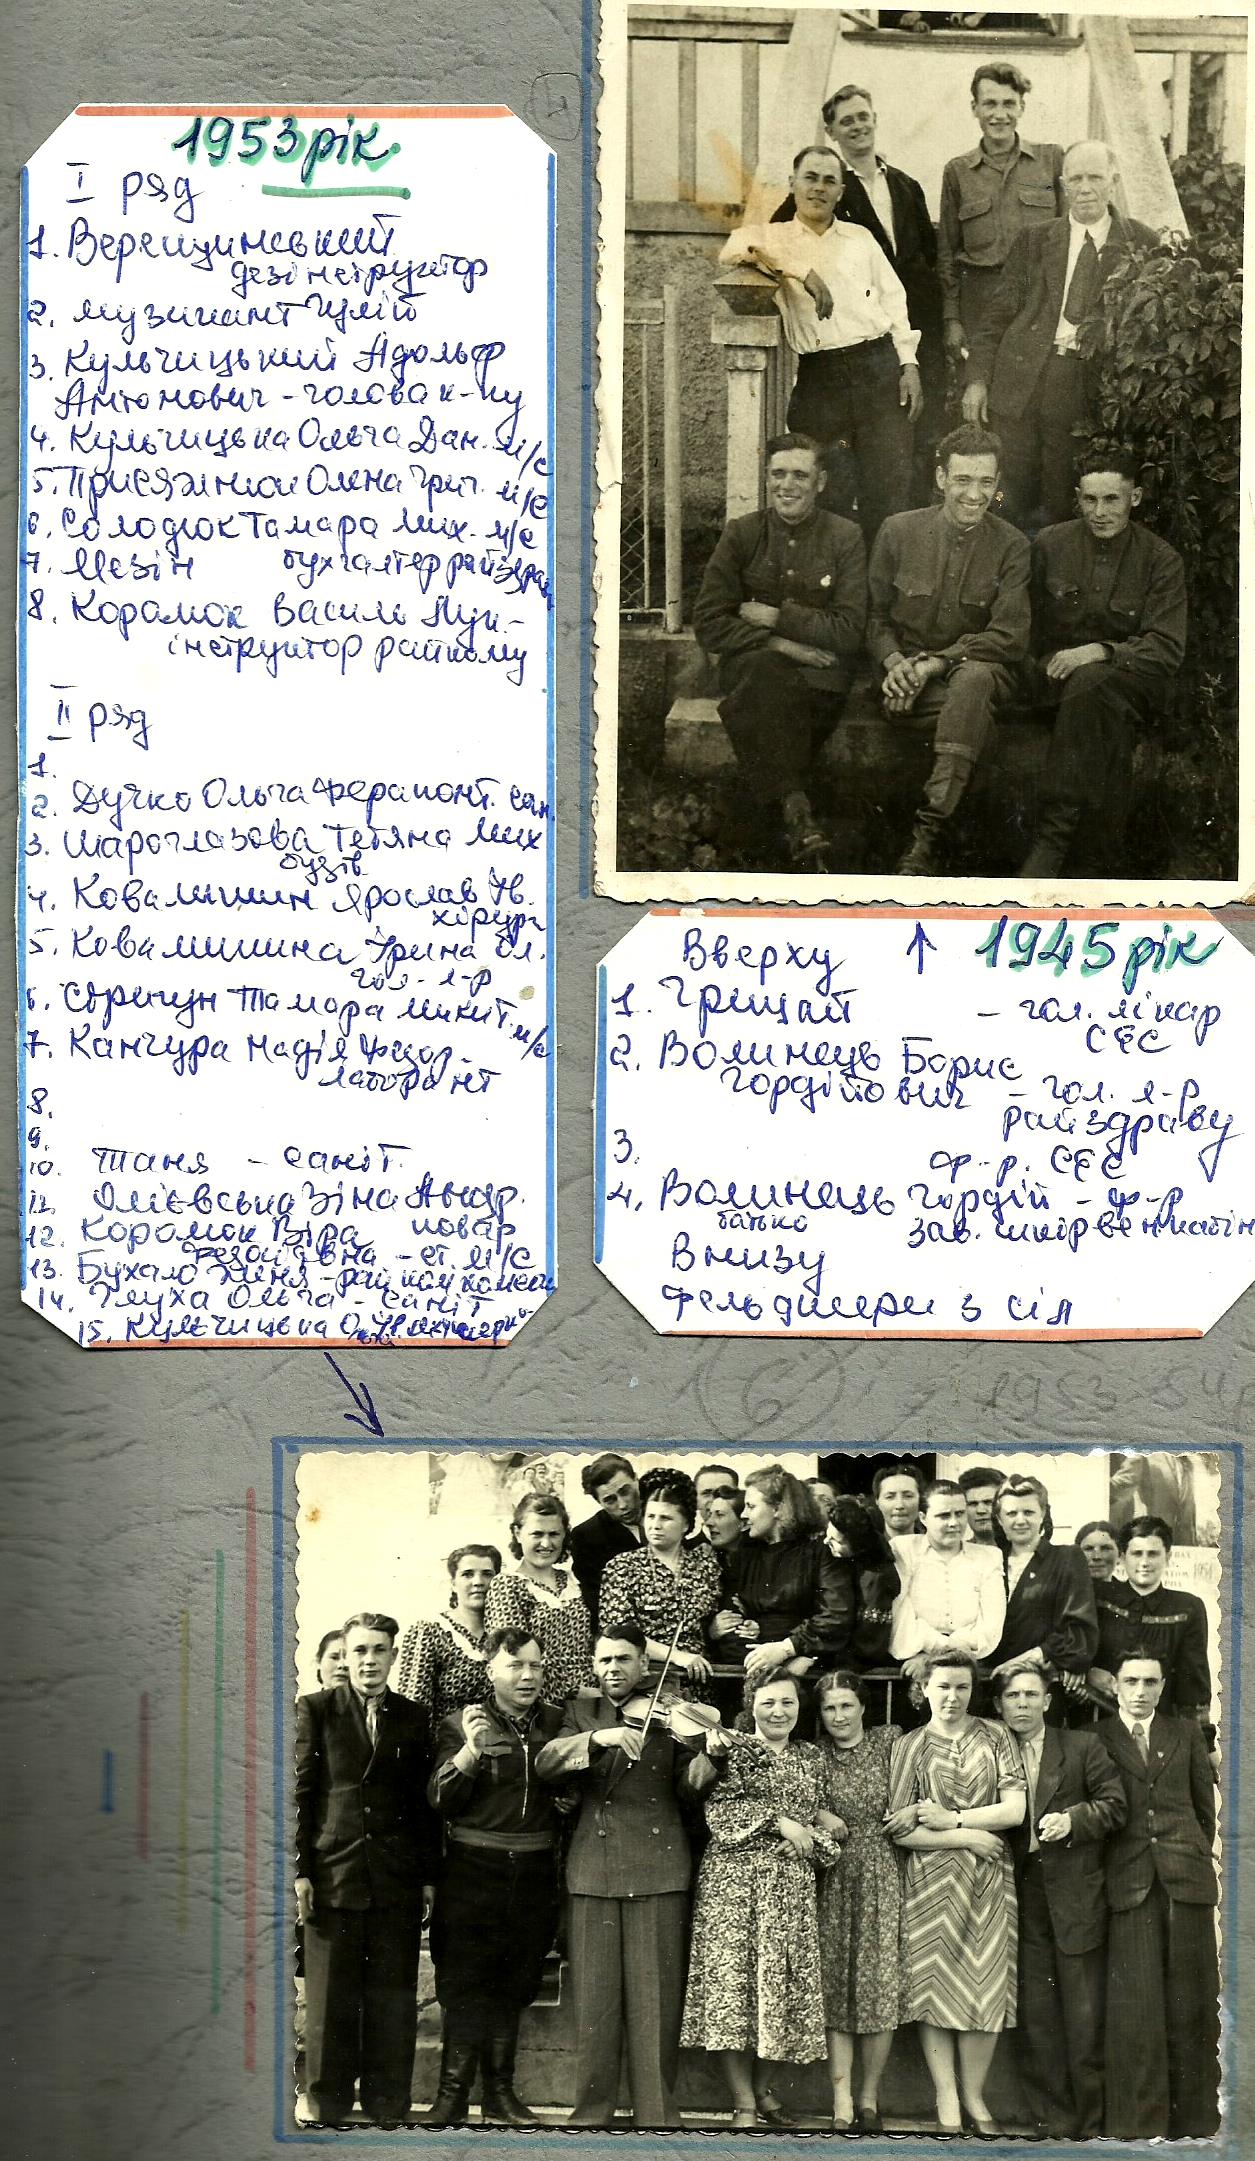 1953 рік
I ряд
1. Верещинський
дезінструктор
2. музикант
3. Кульчицький Адольф
Антонович - голова к-ну
4. Кульчицька Ольга Дан. м/с
5. Присяжнюк Олена Григ. м/с
6. Солодюк Тамара Мих. м/с
7. Мезін бухгалтер райздрав
8. Корамок Василь Лук.-
інструктор райкому
II ряд
1.
2. Дучко Ольга Ферапонт. сан.
3. Шароглазова Тетяна Мих
4. Ковалишин Ярослав Ів.
хірург
5. Ковалишина Ірина Ол.
гол. л-р
6. Тамара Микит. м/с
7. Канчура Надія Федор.
лаборант
8.
9.
10. Таня - саніт.
11. Зіна Андр.
повар
12. Корамок Віра
- ст. м/с
13. Бухало Женя - райком
14. Глуха Ольга - саніт
15. Кульчицька О.
Вверху ↑ 1945 рік
1. Грицай - гол. лікар
СЕС
2. Волинець Борис
Гордійович - гол. л-р
райздраву
3.
ф-р. СЕС
4. Волинець Гордій - ф-р
батько зав. шкірвенкабін
Внизу
Фельдшери з сіл
6
1953-54